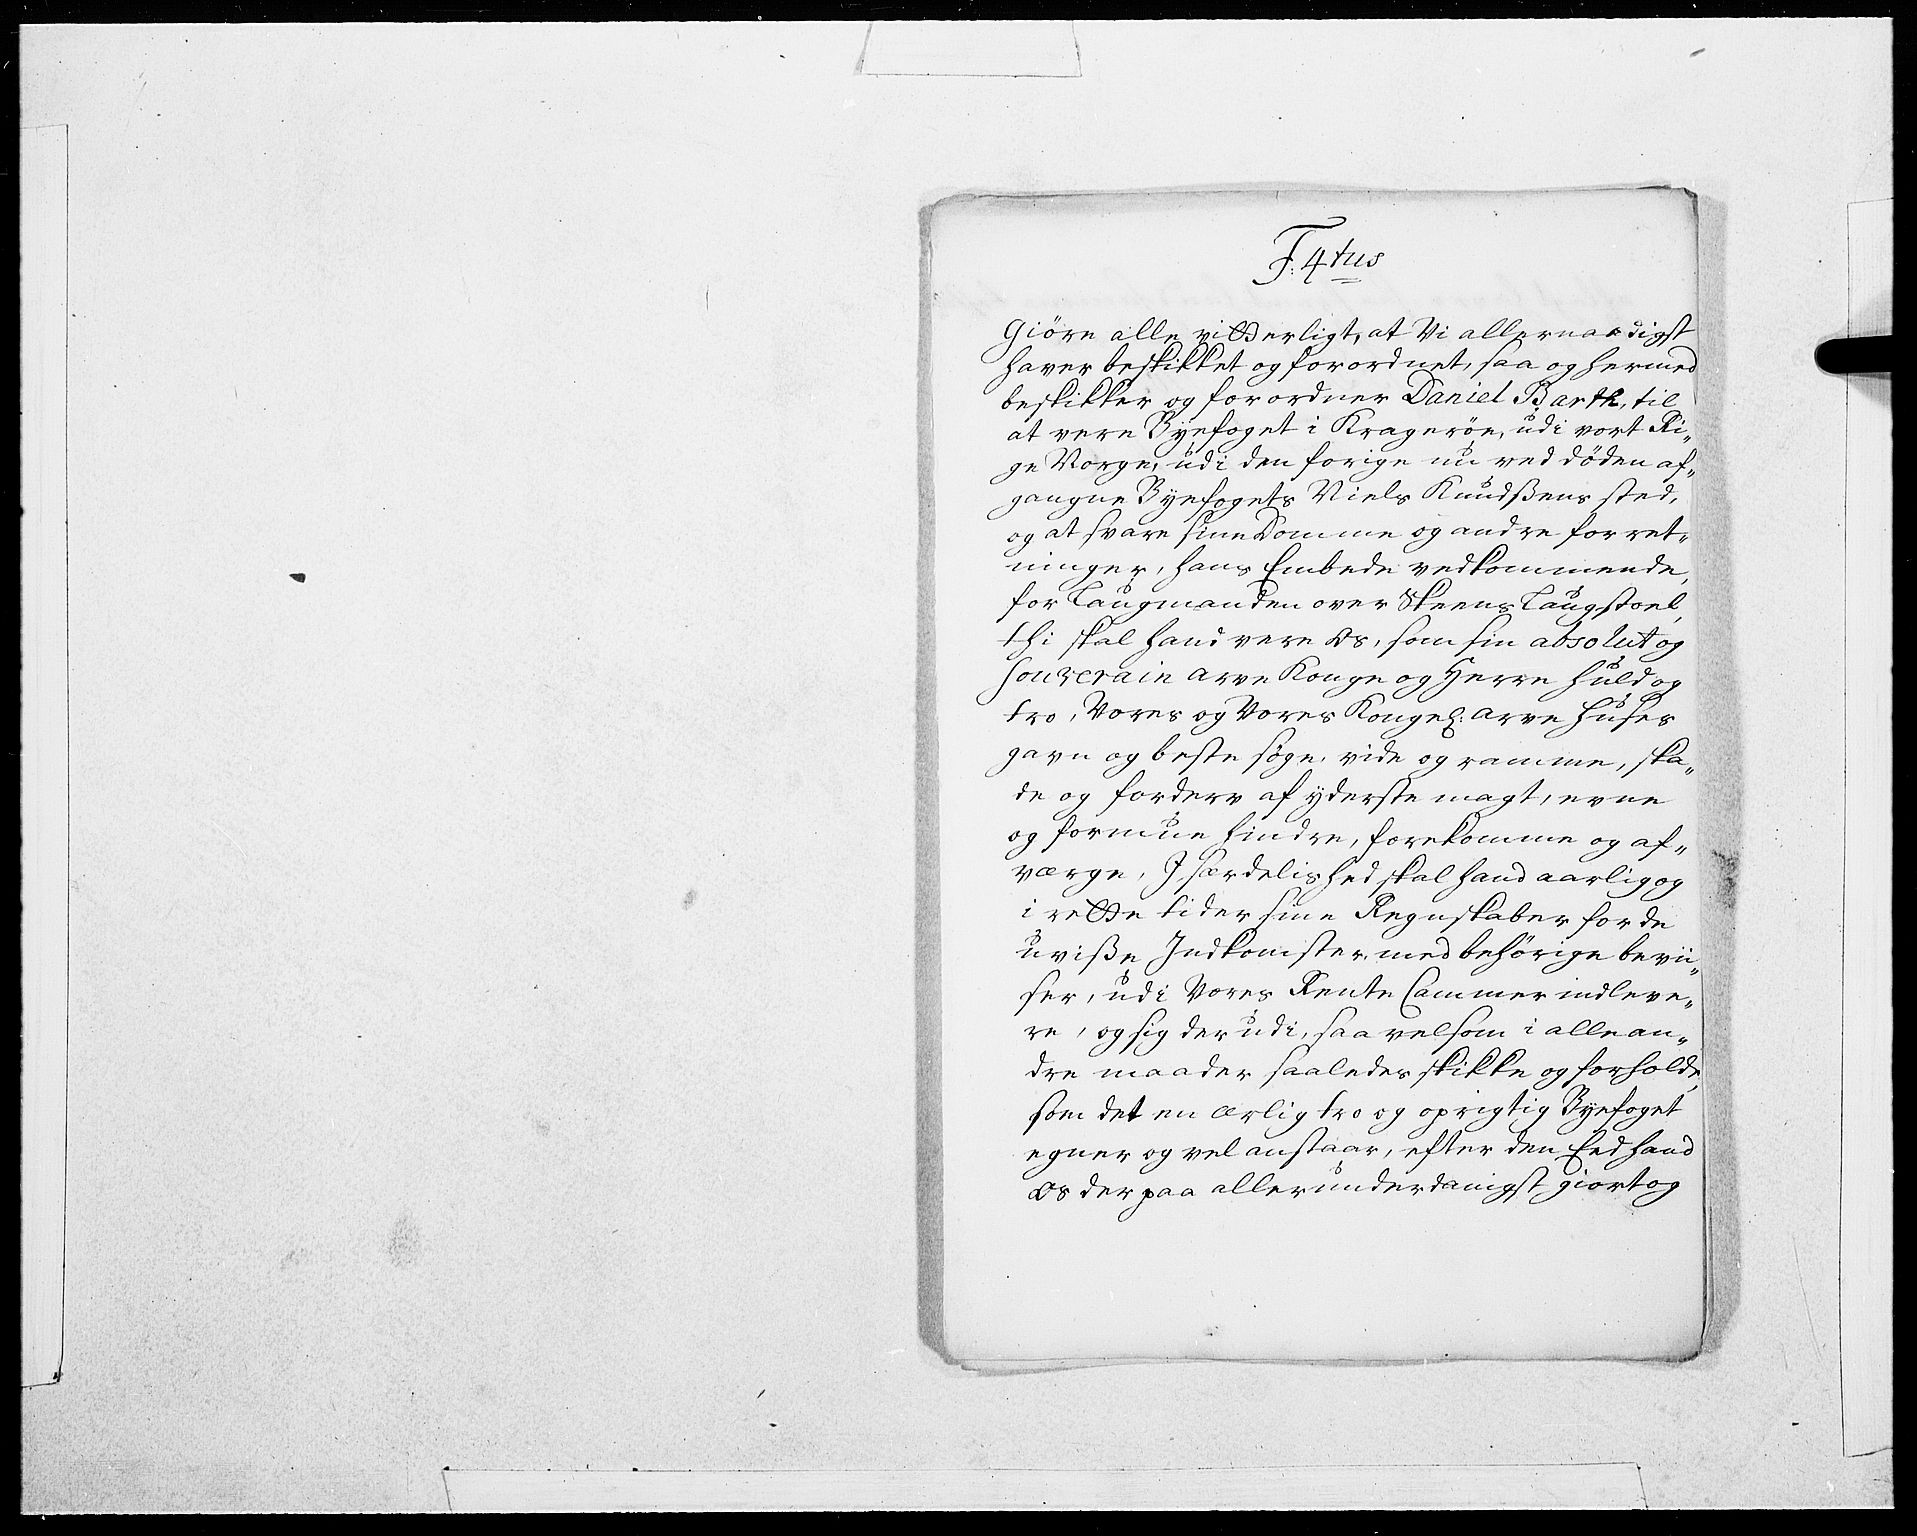 F: 4tus
Giöre alle vitterligt, at Vi allernaadigst
haver beskikket og forordnet, saa og hermed
beskikker og forordner Daniel Barth, til
at vere Byefoget i Kragerøe, udi vort Ri„
ge Norge, udi den forige nu ved døden af„
gangne Byefogets Niels Knudßens sted,
og at svare sine Domme og andre forret„
ninger, hans Embede vedkommende,
for Laugmanden over Skeens Laugstoel,
thi skal hand vere Os, som sin absolut og
souverain Arve Konge og Herre huld og
tro, Vores og Vores Kongel: Arve Huses
gavn og beste søge, vide og ramme, ska„
de og forderv af yderste magt, evne
og formue hindre, forekomme og af„
værge, J særdelished skal hand aarlig og
i rette tider sine Regnskaber for de
uviße Jndkomster, med behörige bevii„
ser, udi Vores Rente Cammer indleve„
re, og sig der udi, saavelsom i alle an„
dre maader saaledes skikke og forholde,
som det en ærlig tro og oprigtig Byefoget
egner og vel anstaar, efter den Eed hand
Os derpaa allerunderdanigst giort og